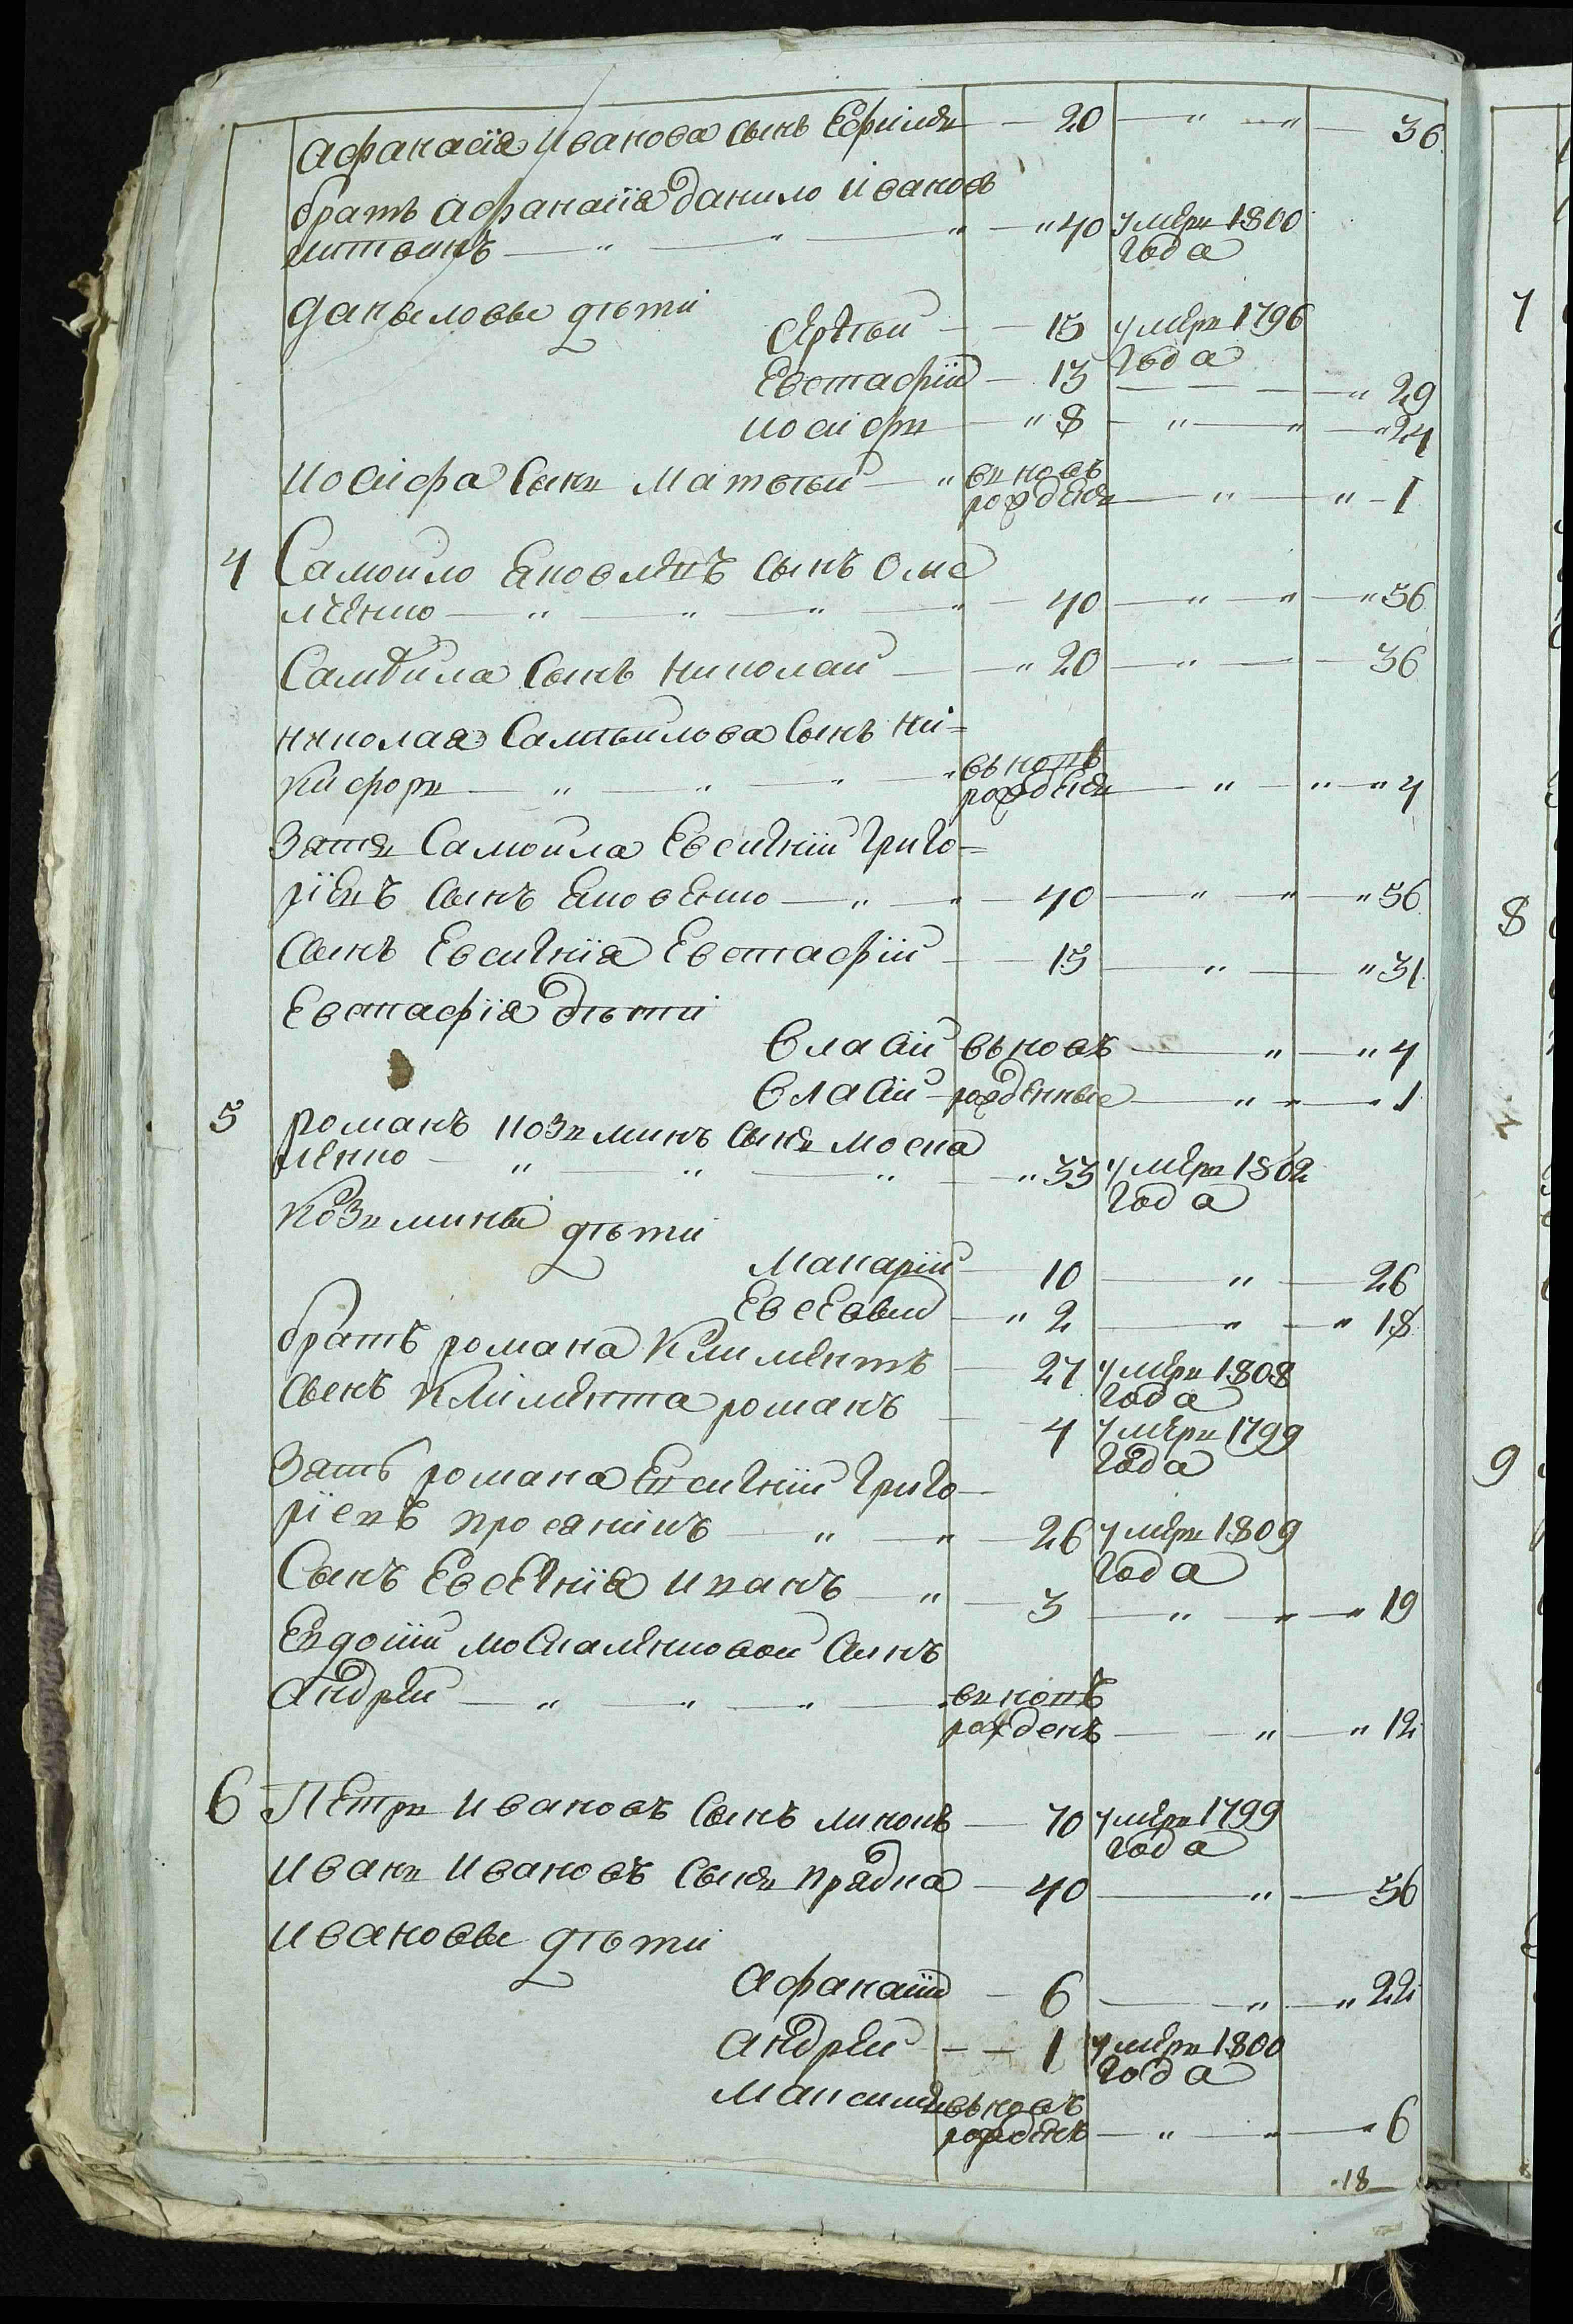 Афанасія Иванова сынъ Ефимъ — 20 — " — " — 36
братъ Афанасія Данило Ивановъ
литвинъ — " — " — " — " 40 умеръ 1800
года
Даниловы дѣти
Сергѣи — 15 умеръ 1796
года
Евстафіи — 13 — — — " 29
Иосифъ — " 8 — " — " — " 24
Иосифа сынъ Матвѣи — " въновь
рожденъ — " — " — 1
4 Самоило Яковлевъ сынъ Оме
лченко — " — " — " — " — 40 — " — " — " 56
Самоила сынъ Николаи — " 20 — " — — 36
Николая Самоилова сынъ Ни=
кифоръ — " — " — " — " въновь
рожденъ — " — " — " 4
Зять Самоила Евсигніи Григо=
ріевъ сынъ Яковенко — " — " — 40 — " — " — " 56
Сынъ Евсигнія Евстафіи — 15 — " — " 31
Евстафія дѣти
Власіи въновь — " — " 4
Власіи рожденные — " — " — 1
5 Романъ Козьминъ сынъ Моска
ленко — " — " — " — " 33 умеръ 1802
года
Козьмины дѣти
Макаріи — 10 — " — 26
Евсевии — " 2 — " — " 18
братъ Романа Климентъ — 27 умеръ 1808
года
сынъ Климента Романъ — 4 умеръ 1799
года
Зять Романа Евсигніи Григо—
ріевъ Просяникъ — " — " — 26 умеръ 1809
года
Сынъ Евсегнія Иванъ — " — 3 — " — " — " 19
Евдокіи Москаленковои сынъ
Андреи — " — " — " — въновь
рожденъ — " — " 12
6 Петръ Ивановъ сынъ — 70 умеръ 1799
года
Иванъ Ивановъ сынъ Прядка — 40 — " — 56
Ивановы дѣти
Афанасіи — 6 — " — " 22
Андреи — — 1 умеръ 1800
года
Максимъ въновь
рожденъ — " — " — " 6
18
7
8
9